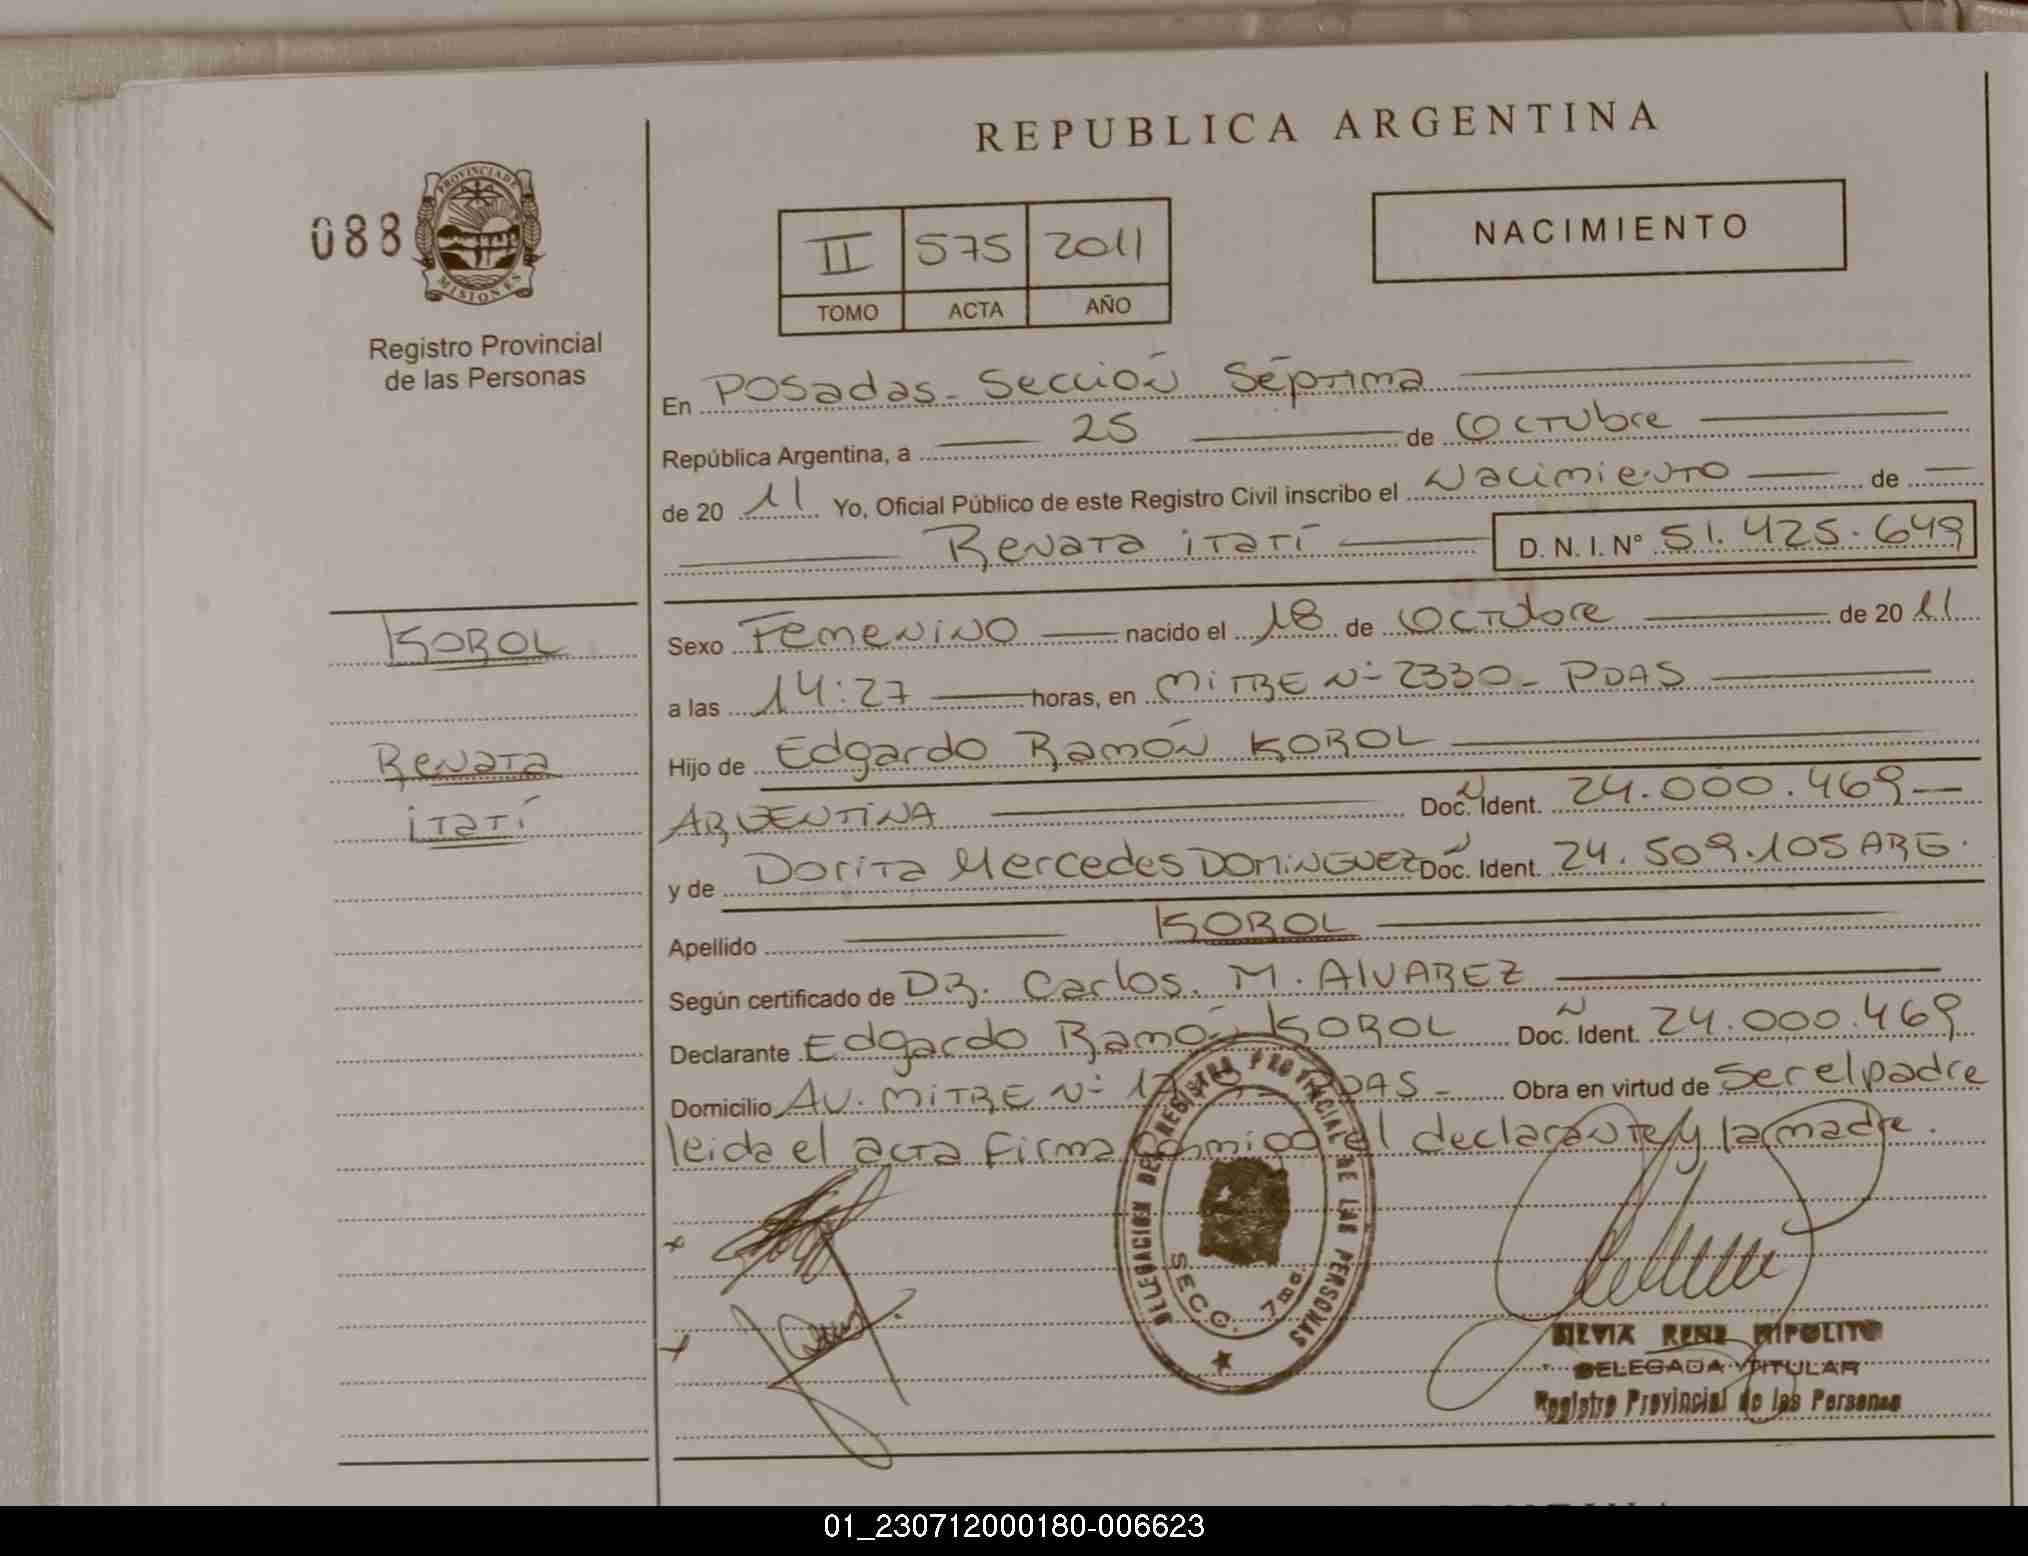 REPUBLICA ARGENTINA
088
PROVINCIA DE
MISIONES
Registro Provincial
de las Personas
II 575 2011
TOMO ACTA AÑO
NACIMIENTO
En Posadas - Sección Séptima
República Argentina, a 25 de Octubre
de 20 11 Yo, Oficial Público de este Registro Civil inscribo el Nacimiento de
Renata itatí D. N. I. N° 51.425.649
KOROL
Renata
itatí
Sexo Femenino nacido el 18 de Octubre de 20 11
a las 14:27 horas, en MiTRE N- 2330 - PDAS
Hijo de Edgardo Ramón KOROL
ARGENTINA Doc. Ident. 24.000.469
y de Dorita Mercedes DOMINGUEZ Doc. Ident. 24.509.105 ARG.
Apellido KOROL
Según certificado de DR. Carlos. M. ALVAREZ
Declarante Edgardo Ramón KOROL Doc. Ident. 24.000.469
Domicilio AV. MiTRE N- PDAS - Obra en virtud de Ser el padre
leida el acta firma conmigo el declarante y la madre.
DELEGACION DEL REGISTRO PROVINCIAL DE LAS PERSONAS
SECC. 7ma
SILVIA RENE HIPOLITO
DELEGADA TITULAR
Registro Provincial de las Personas
01_230712000180-006623